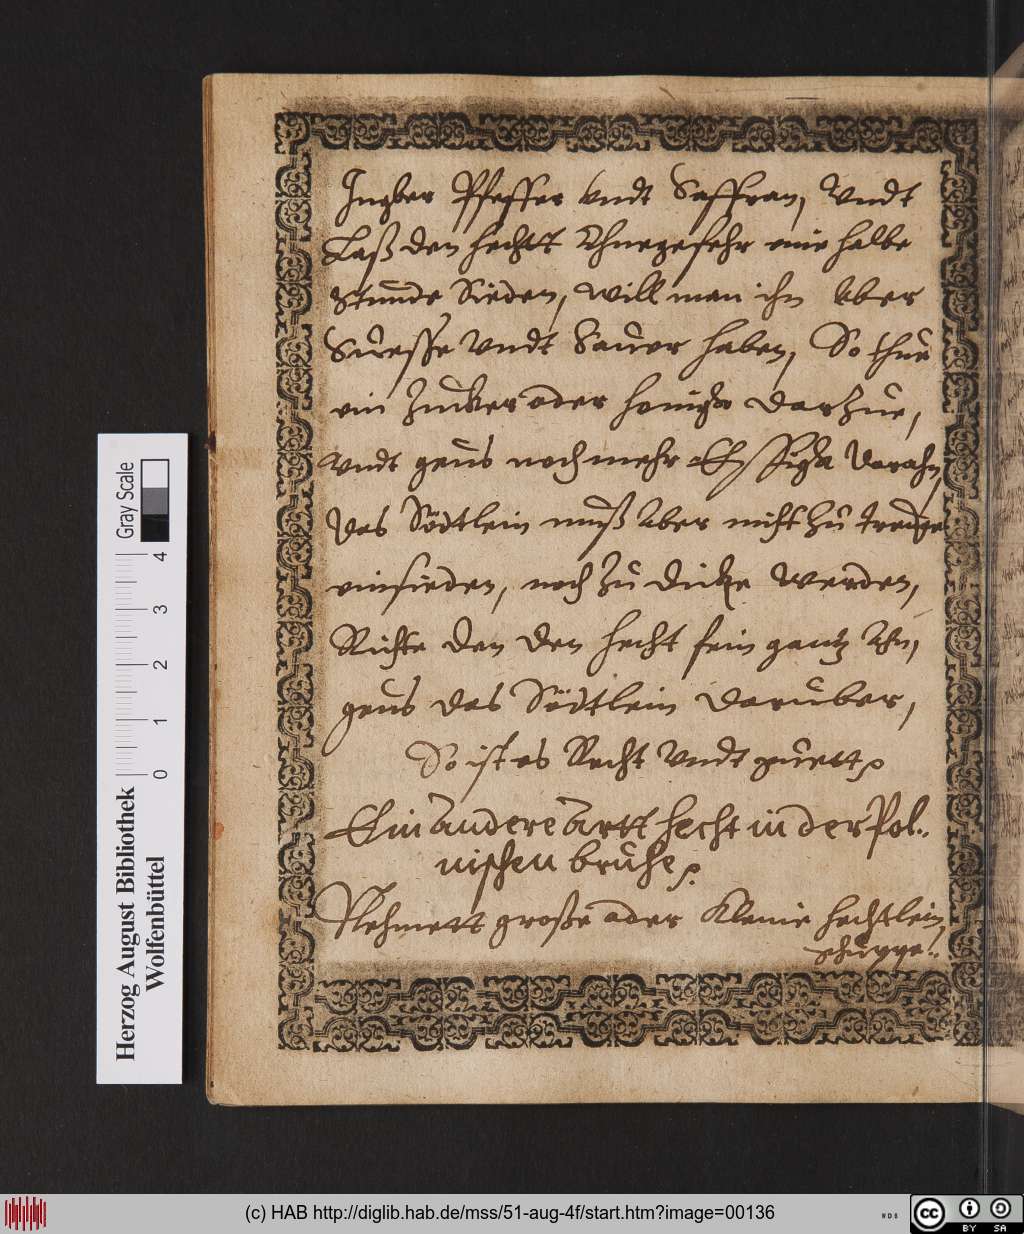 Ingber Pfeffer Vndt Saffran, Vndt
Laß den hechtt Vhnegefehr eine halbe
Stunde Sieden, will man ihn Aber
Süesse Vndt Sauer haben, So thue
ein Zucker oder honigk darzue,
Vndt geus noch mehr Essigk darahn,
Das Södtlein muß Aber nicht zu
einsieden, noch zu dicke werden,
Richte den den hecht fein gantz Ahn,
geus das Södtlein darüber,
So ist es Recht Vndt guett
Ein andere Artt hecht in der Pol-
nischen bruhe
Nehmett große oder Kleine hechtlein,
Herzog August Bibliothek
Wolfenbüttel
Gray Scale
0 1 2 3 4
(c) HAB http://diglib.hab.de/mss/51-aug-4f/start.htm?image=00136
WDB
cc BY SA